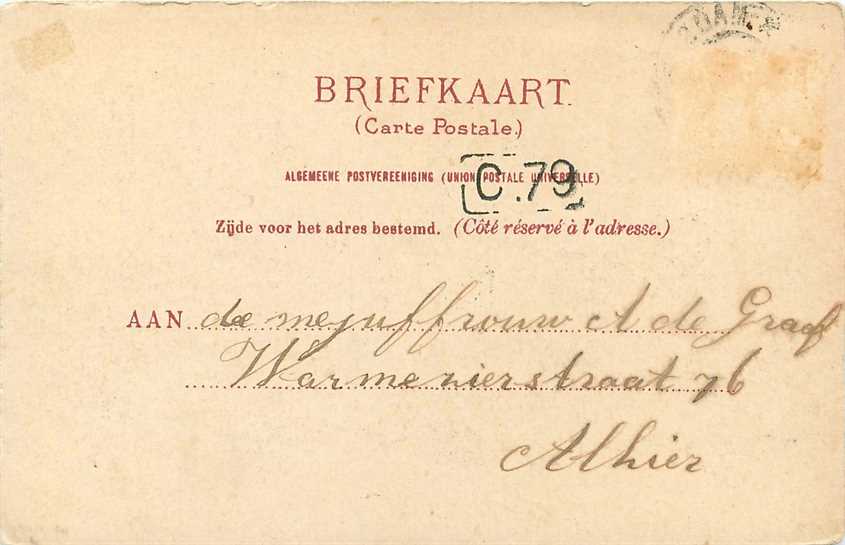 DAM
BRIEFKAART.
(Carte Postale.)
ALGEMEENE POSTVEREENIGING (UNION POSTALE UNIVERSELLE)
C.79
Zijde voor het adres bestemd. (Côté réservé à l'adresse.)
AAN de mejuffrouw A de Graaf
Warmezierstraat 76
Alhier